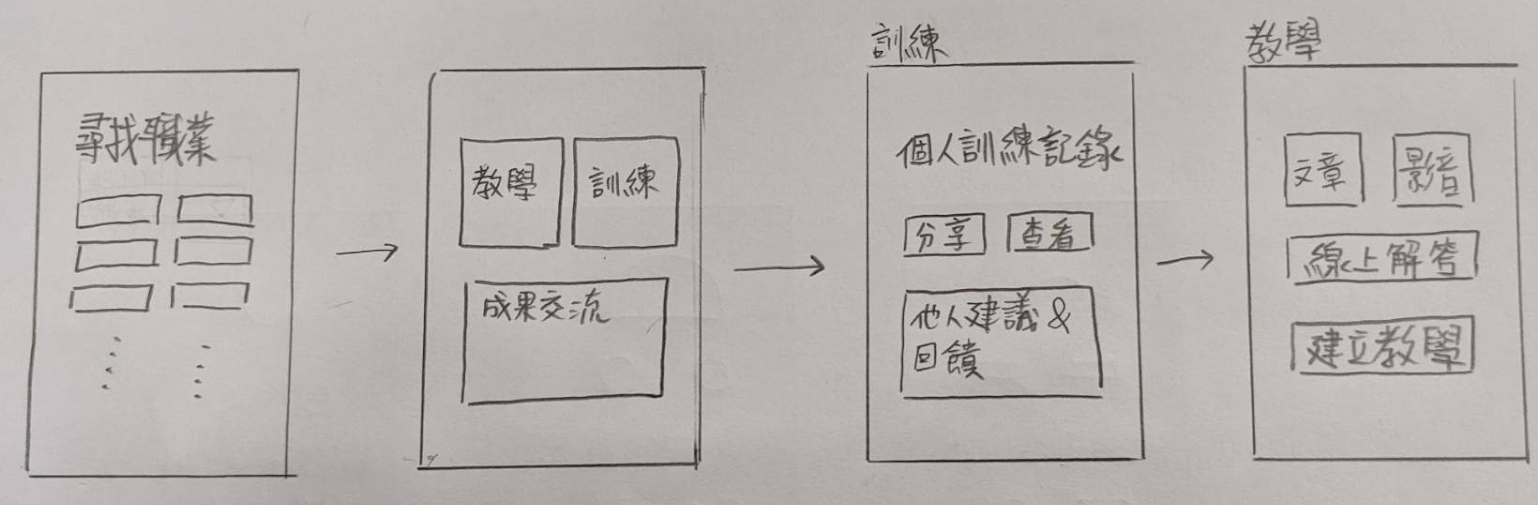 尋找職業
教學
訓練
成果交流
訓練
個人訓練記錄
分享
查看
他人建議&
回饋
教學
文章
影音
線上解答
建立教學